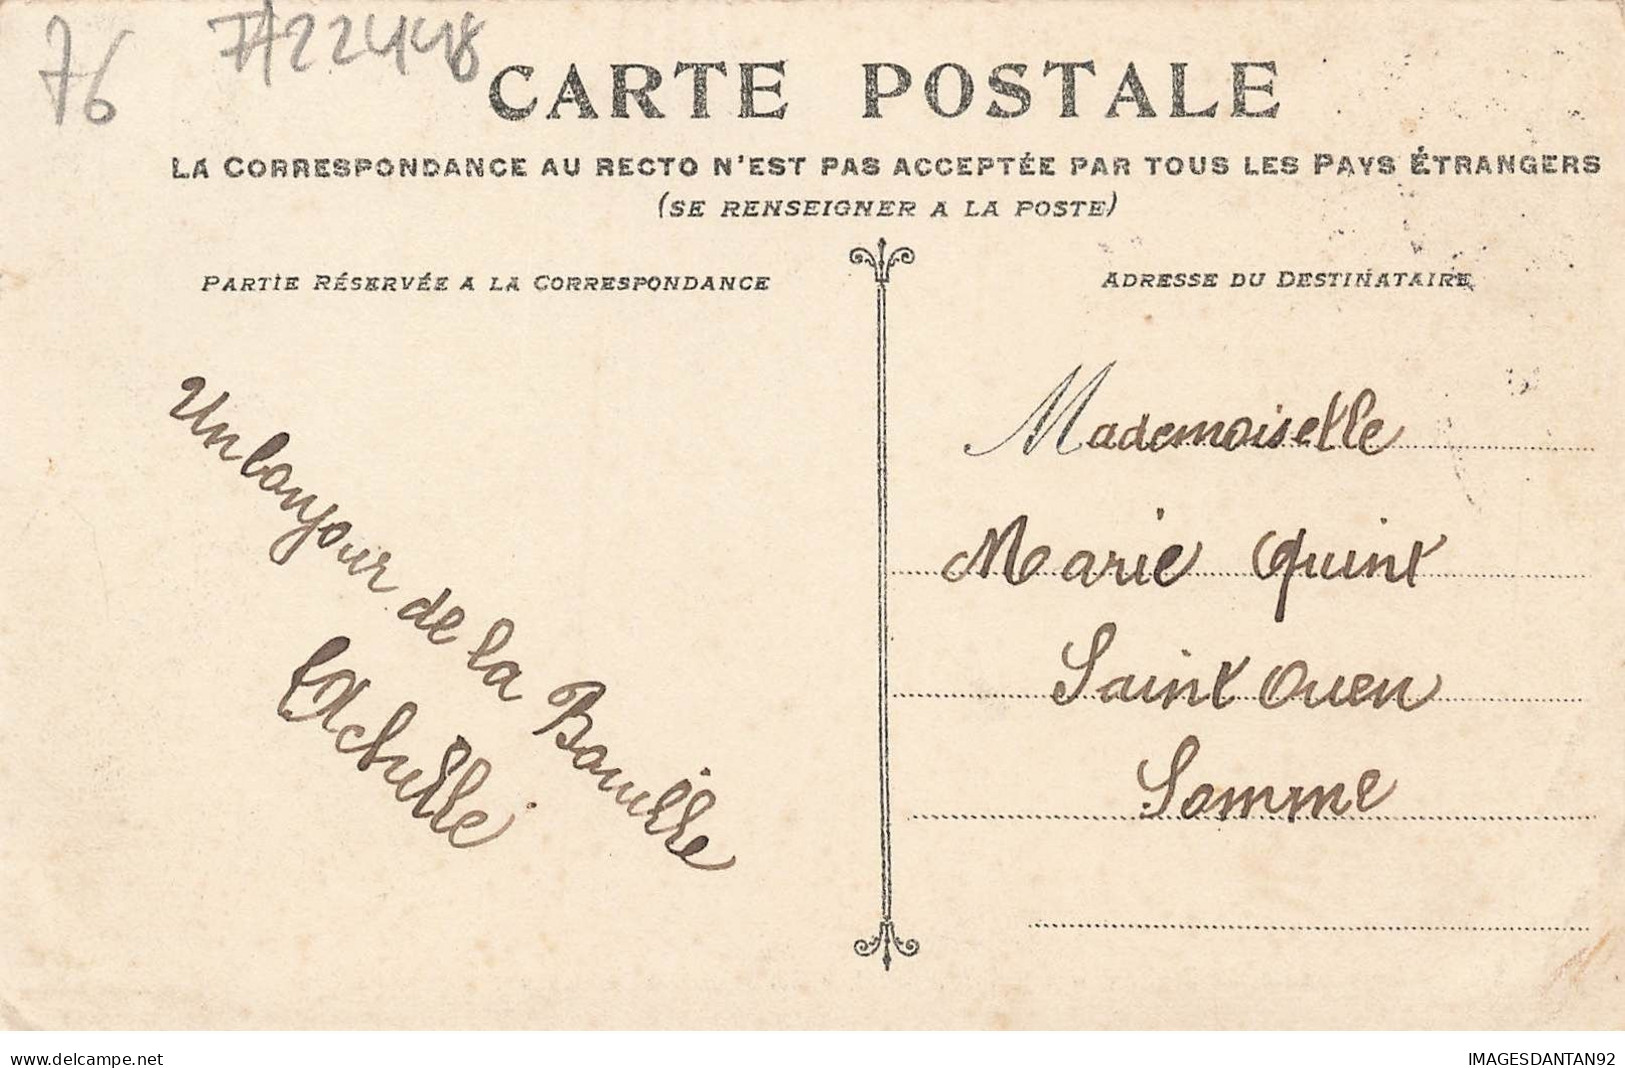 76
7/22448
CARTE POSTALE
LA CORRESPONDANCE AU RECTO N'EST PAS ACCEPTÉE PAR TOUS LES PAYS ÉTRANGERS
(SE RENSEIGNER A LA POSTE)
PARTIE RÉSERVÉE A LA CORRESPONDANCE
ADRESSE DU DESTINATAIRE
Un bonjour de la Bouille
Achille
Mademoiselle
Marie Quint
Saint Ouen
Somme
www.delcampe.net
IMAGESDANTAN92